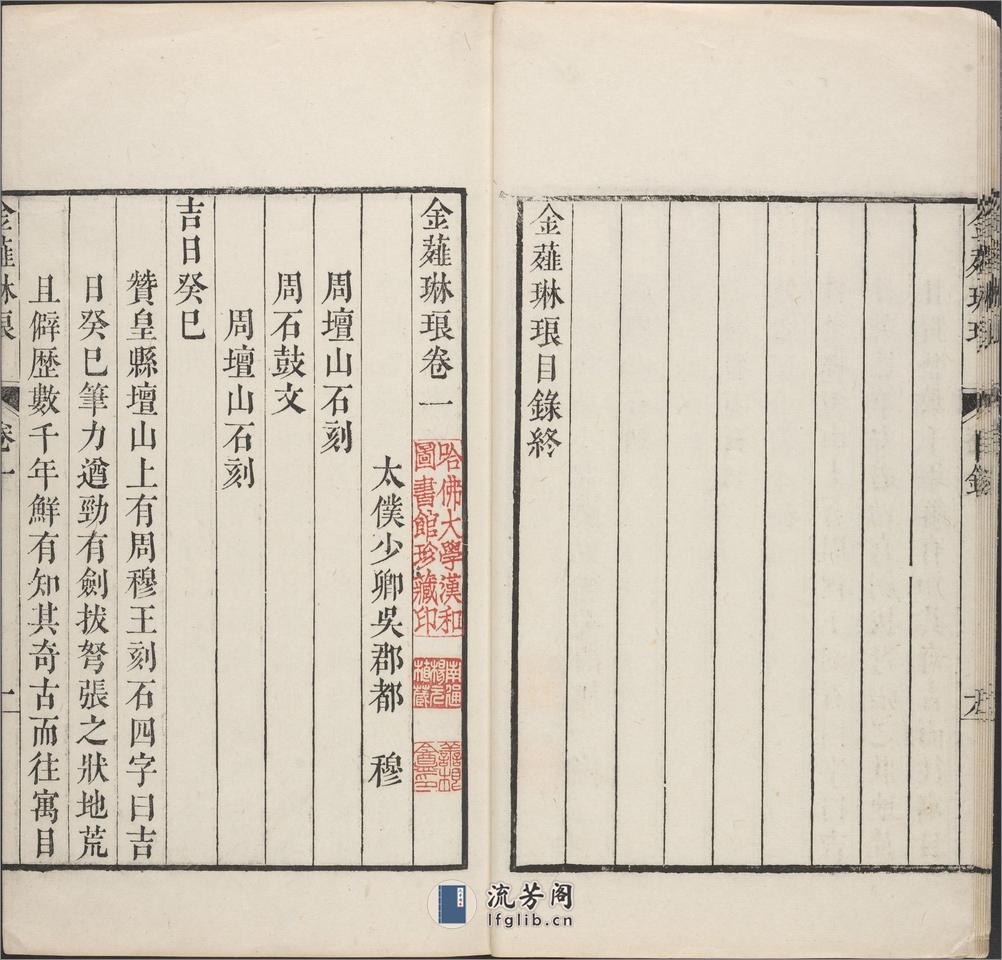 金薤琳琅
目錄
九
金薤琳琅目錄終
金薤琳琅卷一
哈佛大學漢和
圖書館珍藏印
太僕少卿吳郡都 穆
周壇山石刻
周石鼓文
周壇山石刻
吉日癸巳
贊皇縣壇山上有周穆王刻石四字曰吉
日癸巳筆力遒勁有劍拔弩張之狀地荒
且僻歷數千年鮮有知其奇古而往寓目
金薤琳琅
卷一
一
流芳阁
lfglib.cn